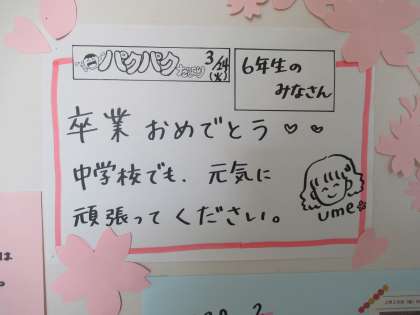 パクパクだより
3/14
(火)
6年生の
みなさん
卒業 おめでとう♡♡
中学校でも、元気に
頑張ってください。
ume
は